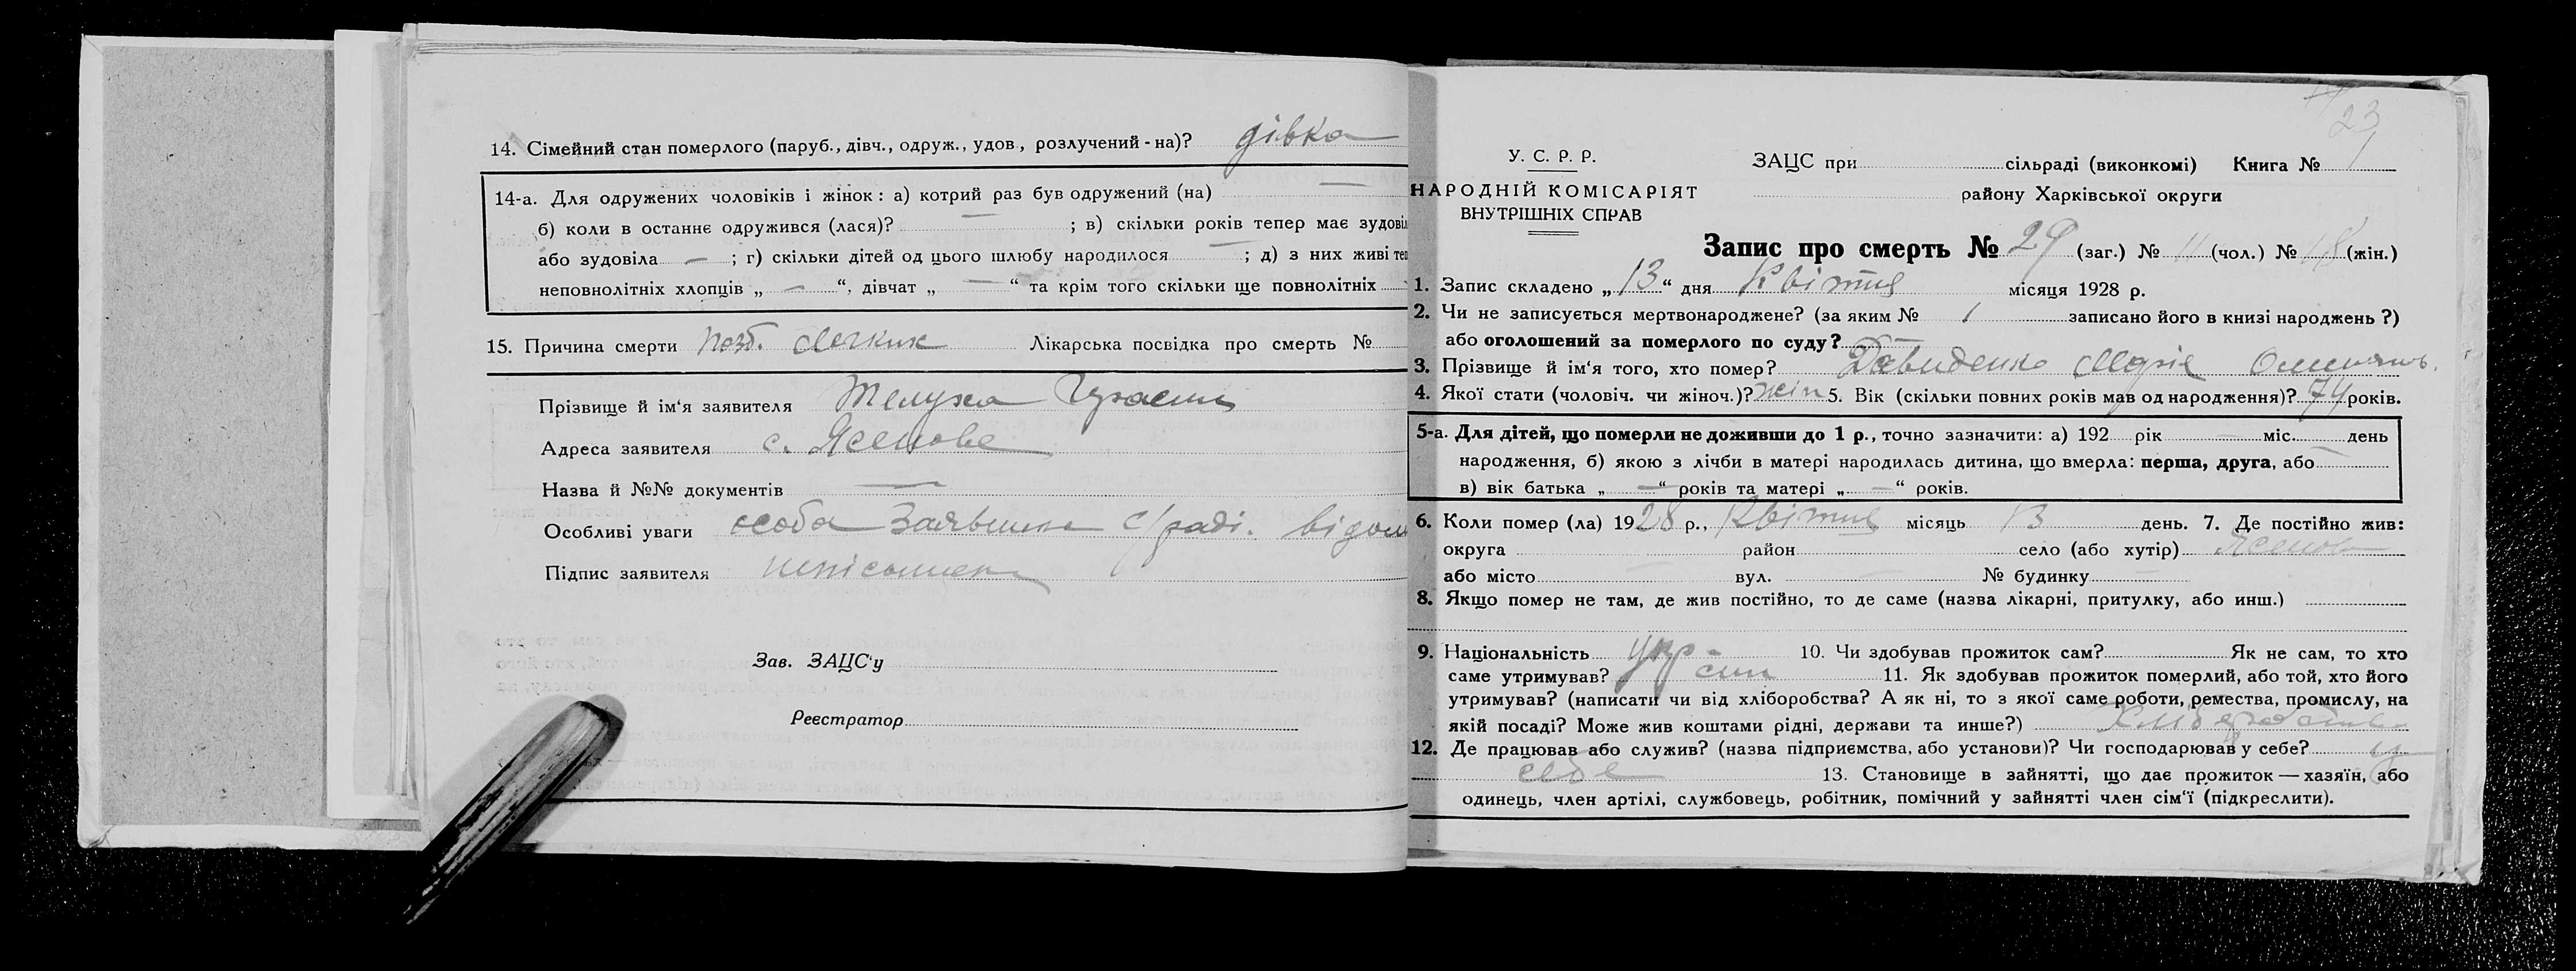 14. Сімейний стан померлого (паруб., дівч., одруж., удов, розлучений - на)? дівка
14-а. Для одружених чоловіків і жінок: а) котрий раз був одружений (на) —
б) коли в останнє одружився (лася)? — ; в) скільки років тепер має зудові
або зудовіла — ; г) скільки дітей од цього шлюбу народилося — ; д) з них живі теп
неповнолітніх хлопців „ — “, дівчат „ — “ та крім того скільки ще повнолітніх
15. Причина смерти Легких Лікарська посвідка про смерть №
Прізвище й ім'я заявителя
Адреса заявителя с. Ясенове
Назва й №№ документів —
Особливі уваги особа Заявителя с/раді. відом
Підпис заявителя
Зав. ЗАЦС'у
Реєстратор
23
У. С. Р. Р.
НАРОДНІЙ КОМІСАРІЯТ
ВНУТРІШНІХ СПРАВ
ЗАЦС при сільраді (виконкомі) Книга № 1
району Харківської округи
Запис про смерть № 29 (заг.) № 11 (чол.) № 18 (жін.)
1. Запис складено „ 13 “ дня Квітня місяця 1928 р.
2. Чи не записується мертвонароджене? (за яким № записано його в книзі народжень ?)
або оголошений за померлого по суду? —
3. Прізвище й ім'я того, хто помер? Давиденко Марія
4. Якої стати (чоловіч. чи жіноч.)? жін 5. Вік (скільки повних років мав од народження)? 74 років.
5-а. Для дітей, що померли не доживши до 1 р., точно зазначити: а) 192 рік — міс. день
народження, б) якою з лічби в матері народилась дитина, що вмерла: перша, друга, або —
в) вік батька „ — “ років та матері „ — “ років.
6. Коли помер (ла) 1928 р., Квітня місяць 13 день. 7. Де постійно жив:
округа район село (або хутір) Ясенове
або місто — вул. — № будинку —
8. Якщо помер не там, де жив постійно, то де саме (назва лікарні, притулку, або инш.)
9. Національність укр 10. Чи здобував прожиток сам? Як не сам, то хто
саме утримував? син 11. Як здобував прожиток померлий, або той, хто його
утримував? (написати чи від хліборобства? А як ні, то з якої саме роботи, ремества, промислу, на
якій посаді? Може жив коштами рідні, держави та инше?) Хліборобство
12. Де працював або служив? (назва підприємства, або установи)? Чи господарював у себе? у
себе 13. Становище в зайнятті, що дає прожиток — хазяїн, або
одинець, член артілі, службовець, робітник, помічний у зайнятті член сім'ї (підкреслити).